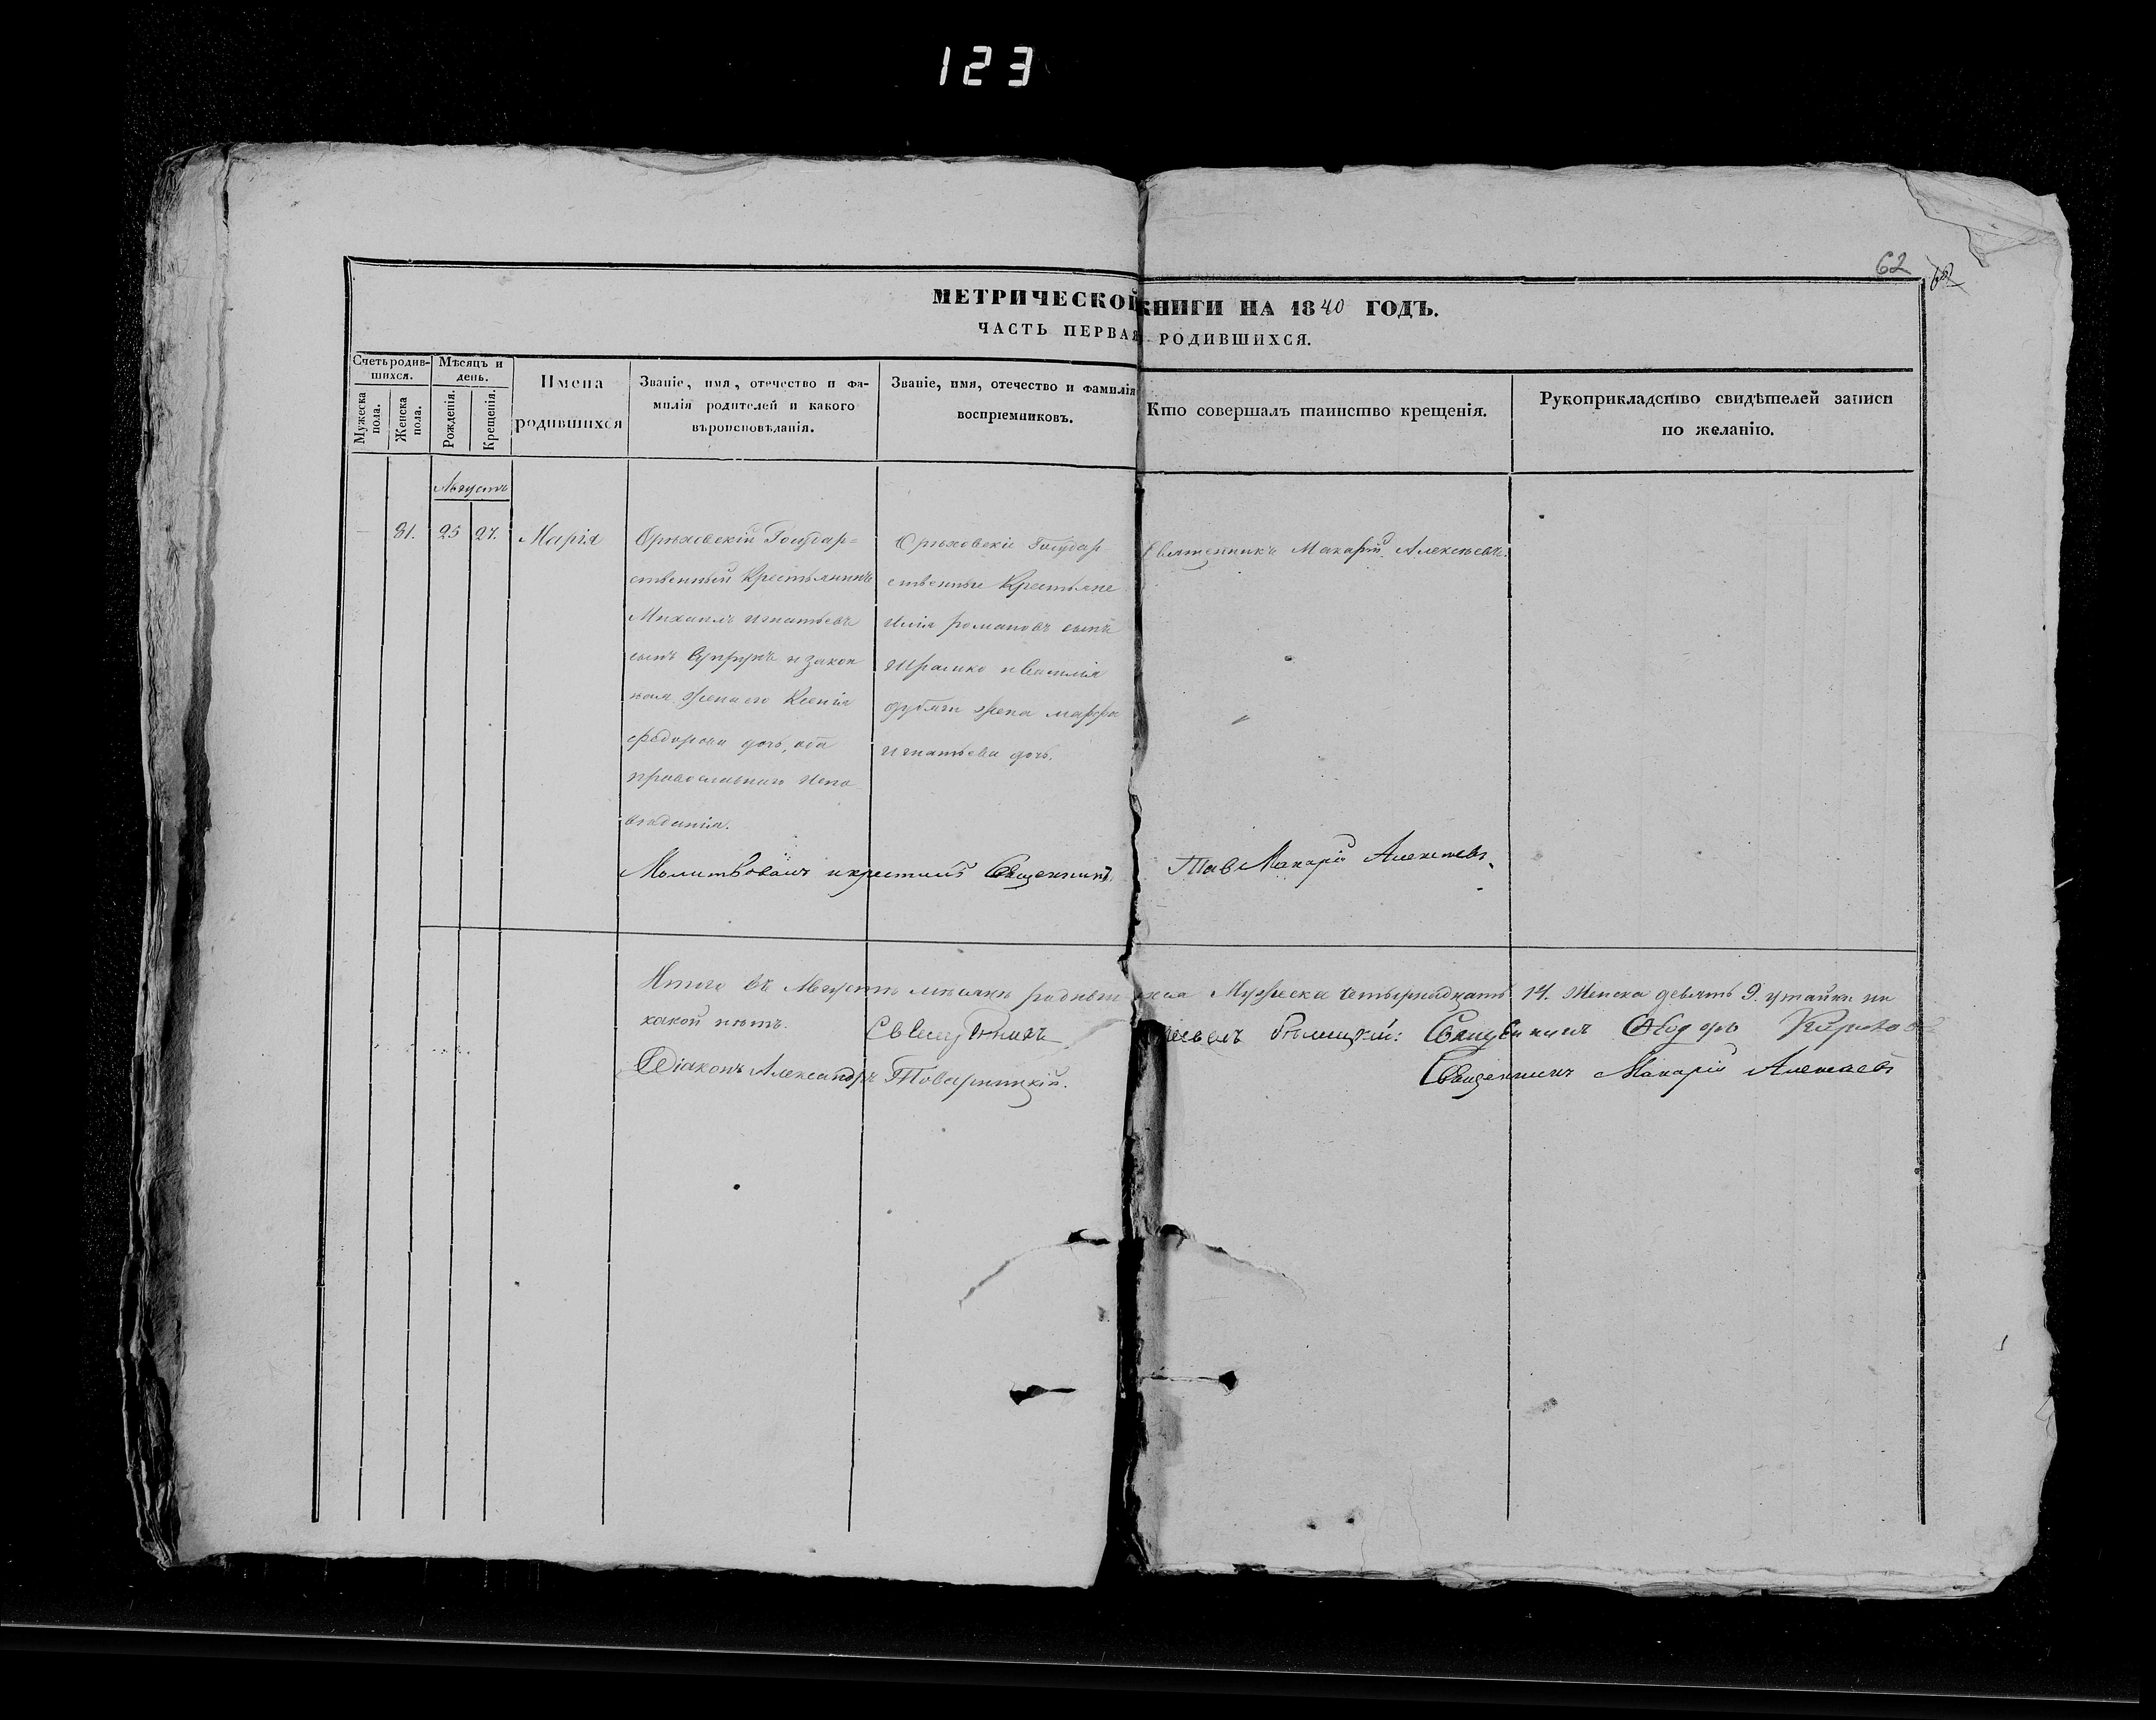 123
62
62
МЕТРИЧЕСКОЙ КНИГИ НА 1840 ГОДЪ.
ЧАСТЬ ПЕРВАЯ РОДИВШИХСЯ.
Счетъ родив-
шихся.
Мужеска
пола.
Женска
пола.
Мѣсяцъ и
день.
Рожденія.
Крещенія.
Имена
родившихся
Званіе, имя, отечество и фа-
милія родителей и какого
вѣроисповѣданія.
Званіе, имя, отечество и фамилія
воспріемниковъ.
Кто совершалъ таинство крещенія.
Рукоприкладство свидѣтелей записи
по желанію.
Августъ
81. 25 27. Марія
Орѣховскій Государ=
ственный Крестьянинъ
Михаилъ Игнатьевъ
сынъ Супрунъ и закон
ная жена его Ксенія
федорова дочь, оба
православнаго испо
вѣданія.
Орѣховскіе Государ-
ственные Крестьяне
Илія романовъ сынъ
и Василія
жена марфа
Игнатьева дочь.
Священникъ Макарій Алексѣевъ.
Молитвовалъ и крестилъ Священникъ Макарій Алексѣевъ.
Итого въ Августѣ мѣсяцѣ родившихся Мужеска четырнадцать 14. Женска девять 9. утайки ни
какой нѣтъ.
Священникъ Феодоръ
Діаконъ Александръ Товарницкій.
Священникъ Макарій Алексѣевъ